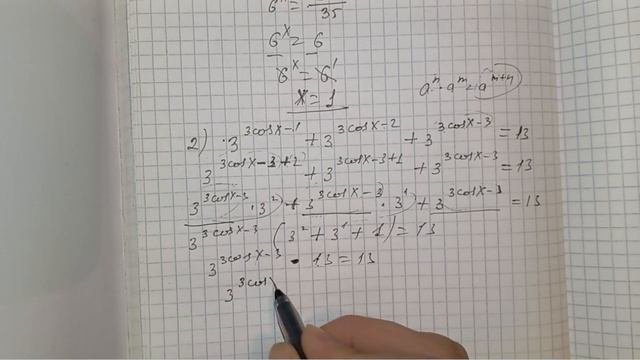 35
6^x = 6
6^x = 6^1
x = 1
a^n · a^m = a^{m+n}
2) · 3^{3cosx-1} + 3^{3cosx-2} + 3^{3cosx-3} = 13
3^{3cosx-3+2} + 3^{3cosx-3+1} + 3^{3cosx-3} = 13
3^{3cosx-3} · 3^2 + 3^{3cosx-3} · 3^1 + 3^{3cosx-3} = 13
3^{3cosx-3} (3^2 + 3^1 + 1) = 13
3^{3cosx-3} · 13 = 13
3^{3cos